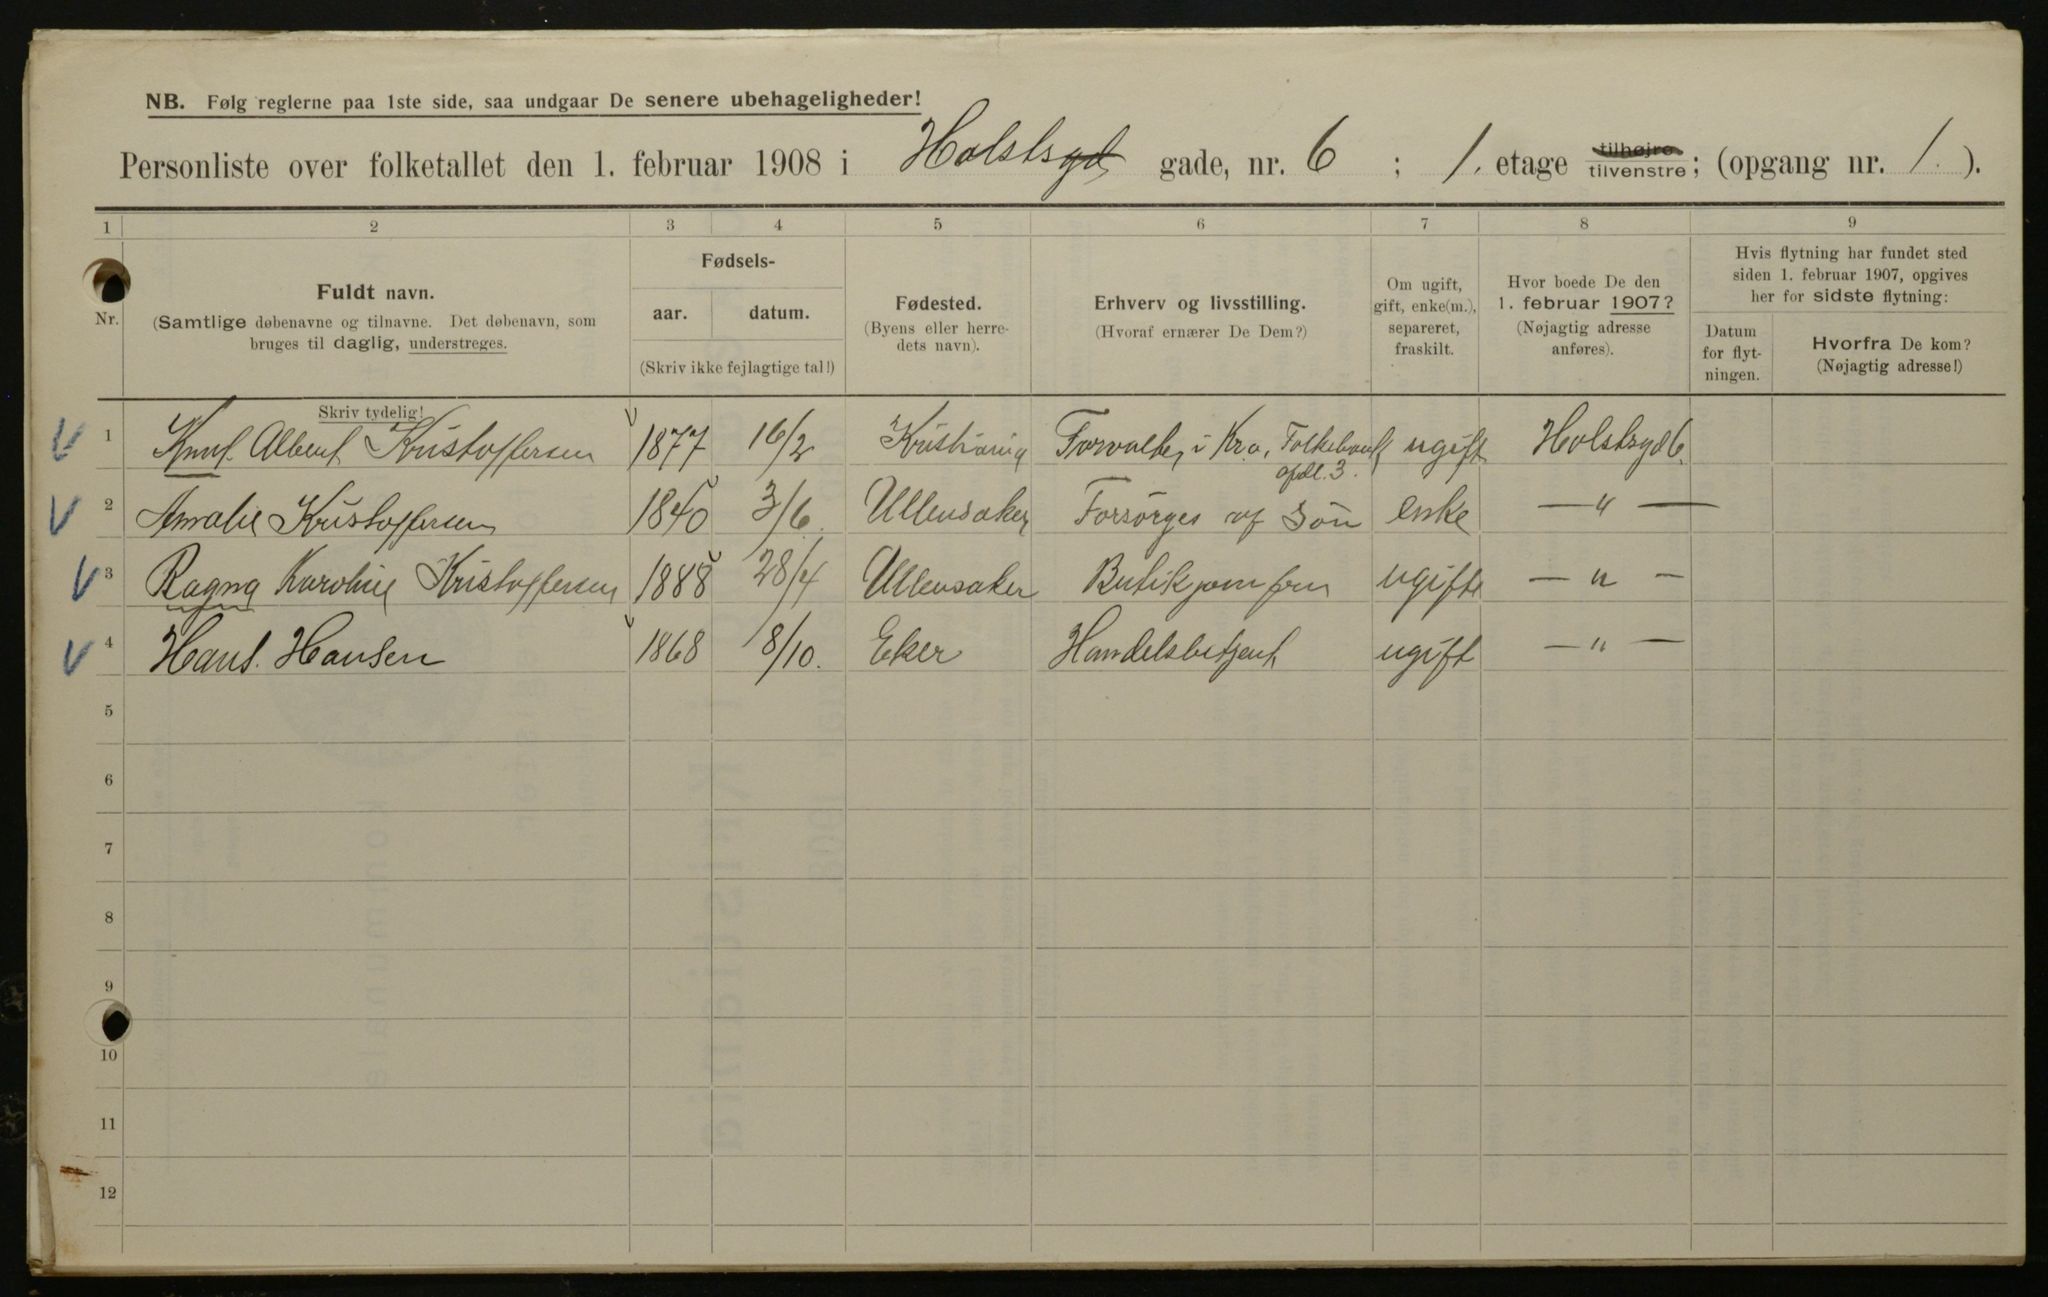 NB. Følg reglerne paa 1ste side, saa undgaar De senere ubehageligheder!
Personliste over folketallet den 1. februar 1908 i Holstsgd gade, nr. 6 ; 1. etage tilhøjre tilvenstre; (opgang nr. 1. ).
1 2 3 4 5 6 7 8 9
Nr.
Fuldt navn.
(Samtlige døbenavne og tilnavne. Det døbenavn, som
bruges til daglig, understreges.
Fødsels-
aar. datum.
(Skriv ikke fejlagtige tal!)
Fødested.
(Byens eller herre-
dets navn).
Erhverv og livsstilling.
(Hvoraf ernærer De Dem?)
Om ugift,
gift, enke(m.),
separeret,
fraskilt.
Hvor boede De den
1. februar 1907?
(Nøjagtig adresse
anføres).
Hvis flytning har fundet sted
siden 1. februar 1907, opgives
her for sidste flytning:
Datum
for flyt-
ningen.
Hvorfra De kom?
(Nøjagtig adresse!)
Skriv tydelig!
1 Knut. Albert Kristoffersen 1877 16/2 Kristiania Forvalter i Kra. Folkebank ugift Holstsgd 6.
afdl. 3.
2 Amalie Kristoffersen 1840 3/6. Ullensaker Forsørges af Søn enke — " —
3 Ragna Karoline Kristoffersen 1888 28/4 Ullensaker Butikjomfru ugift — " —
4 Hans. Hansen 1868 8/10. Eker Handelsbetjent ugift — " —
5
6
7
8
9
10
11
12